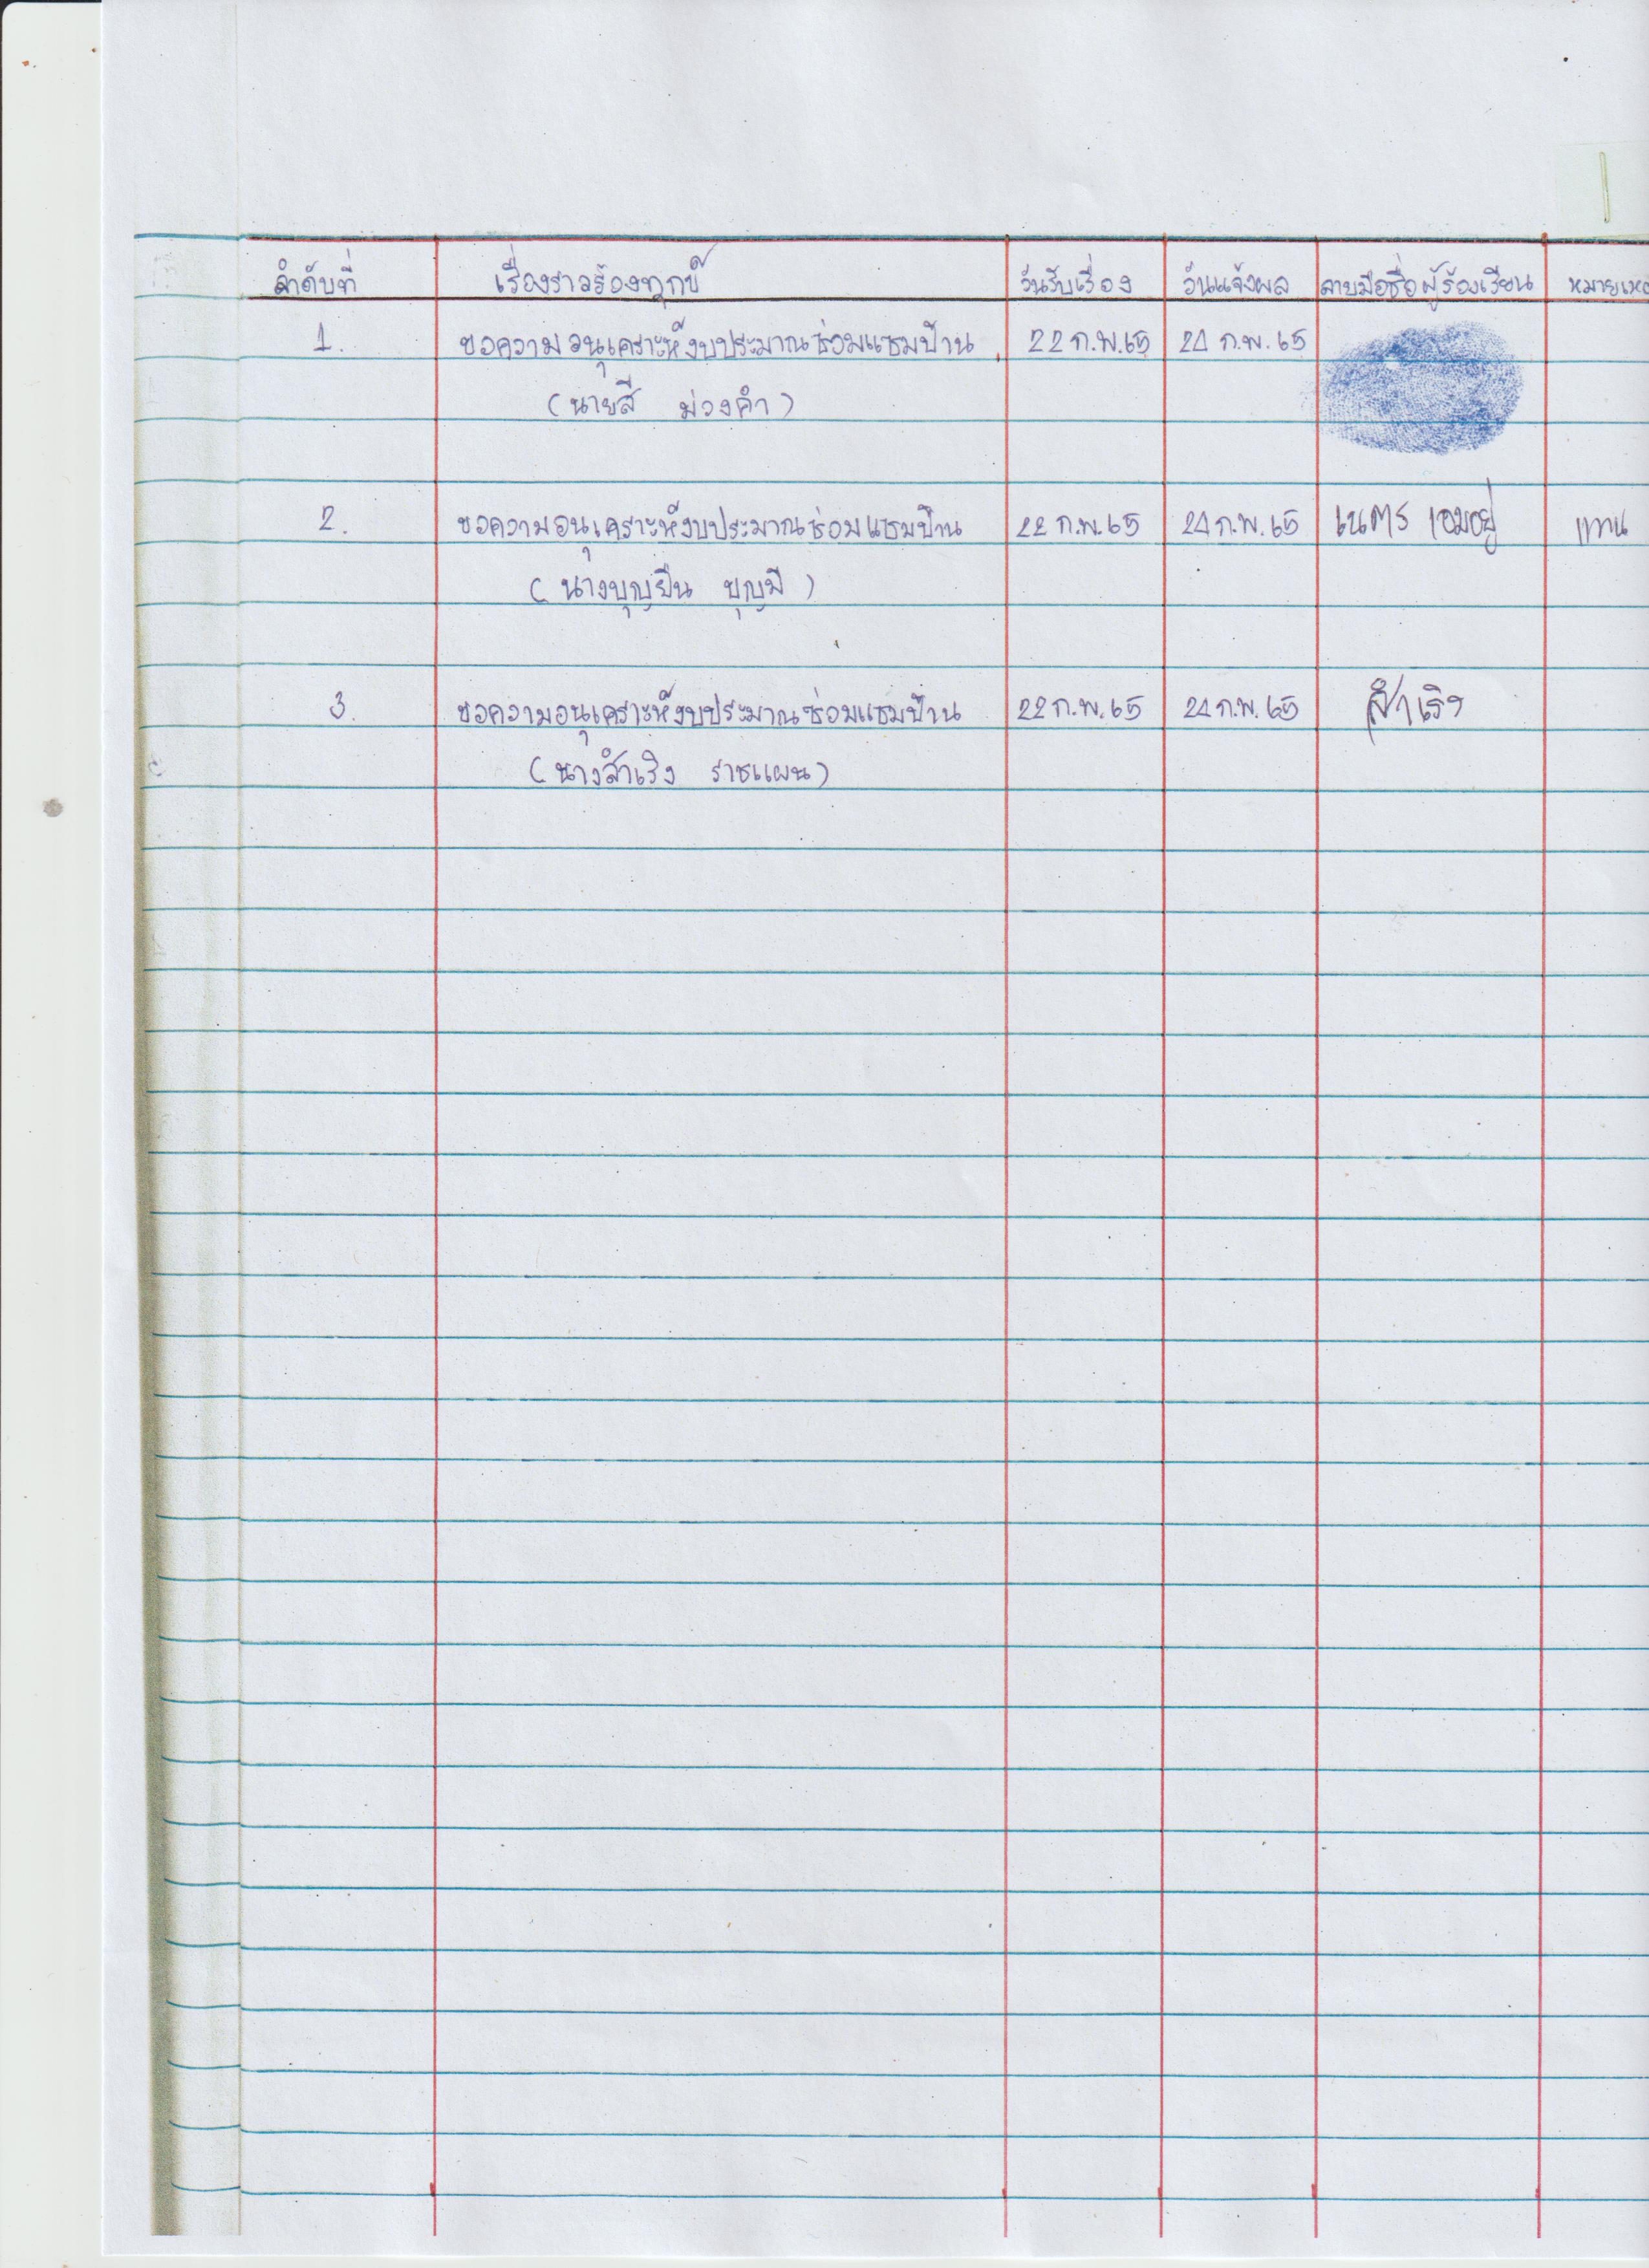 ลำดับที่ เรื่องราวร้องทุกข์ วันรับเรื่อง วันแจ้งผล ลายมือชื่อผู้ร้องเรียน หมายเหต
1. ขอความอนุเคราะห์งบประมาณซ่อมแซมบ้าน 22 ก.พ.65 24 ก.พ.65
(นายสี ม่วงคำ)
2. ขอความอนุเคราะห์งบประมาณซ่อมแซมบ้าน 22 ก.พ.65 24 ก.พ.65 เนตร เอมอยู่ แทน
(นางบุญยืน บุญมี)
3. ขอความอนุเคราะห์งบประมาณซ่อมแซมบ้าน 22 ก.พ.65 24 ก.พ.65 สำเริง
(นางสำเริง ราชแผน)